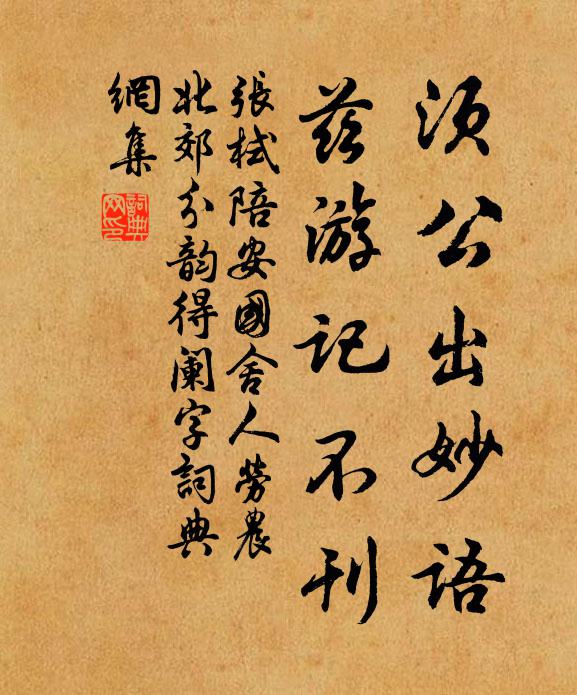 須公出妙語
茲游記不刊
張栻陪安國舍人勞農
北郊分韵得阑字詞典
網集
詞典
网印